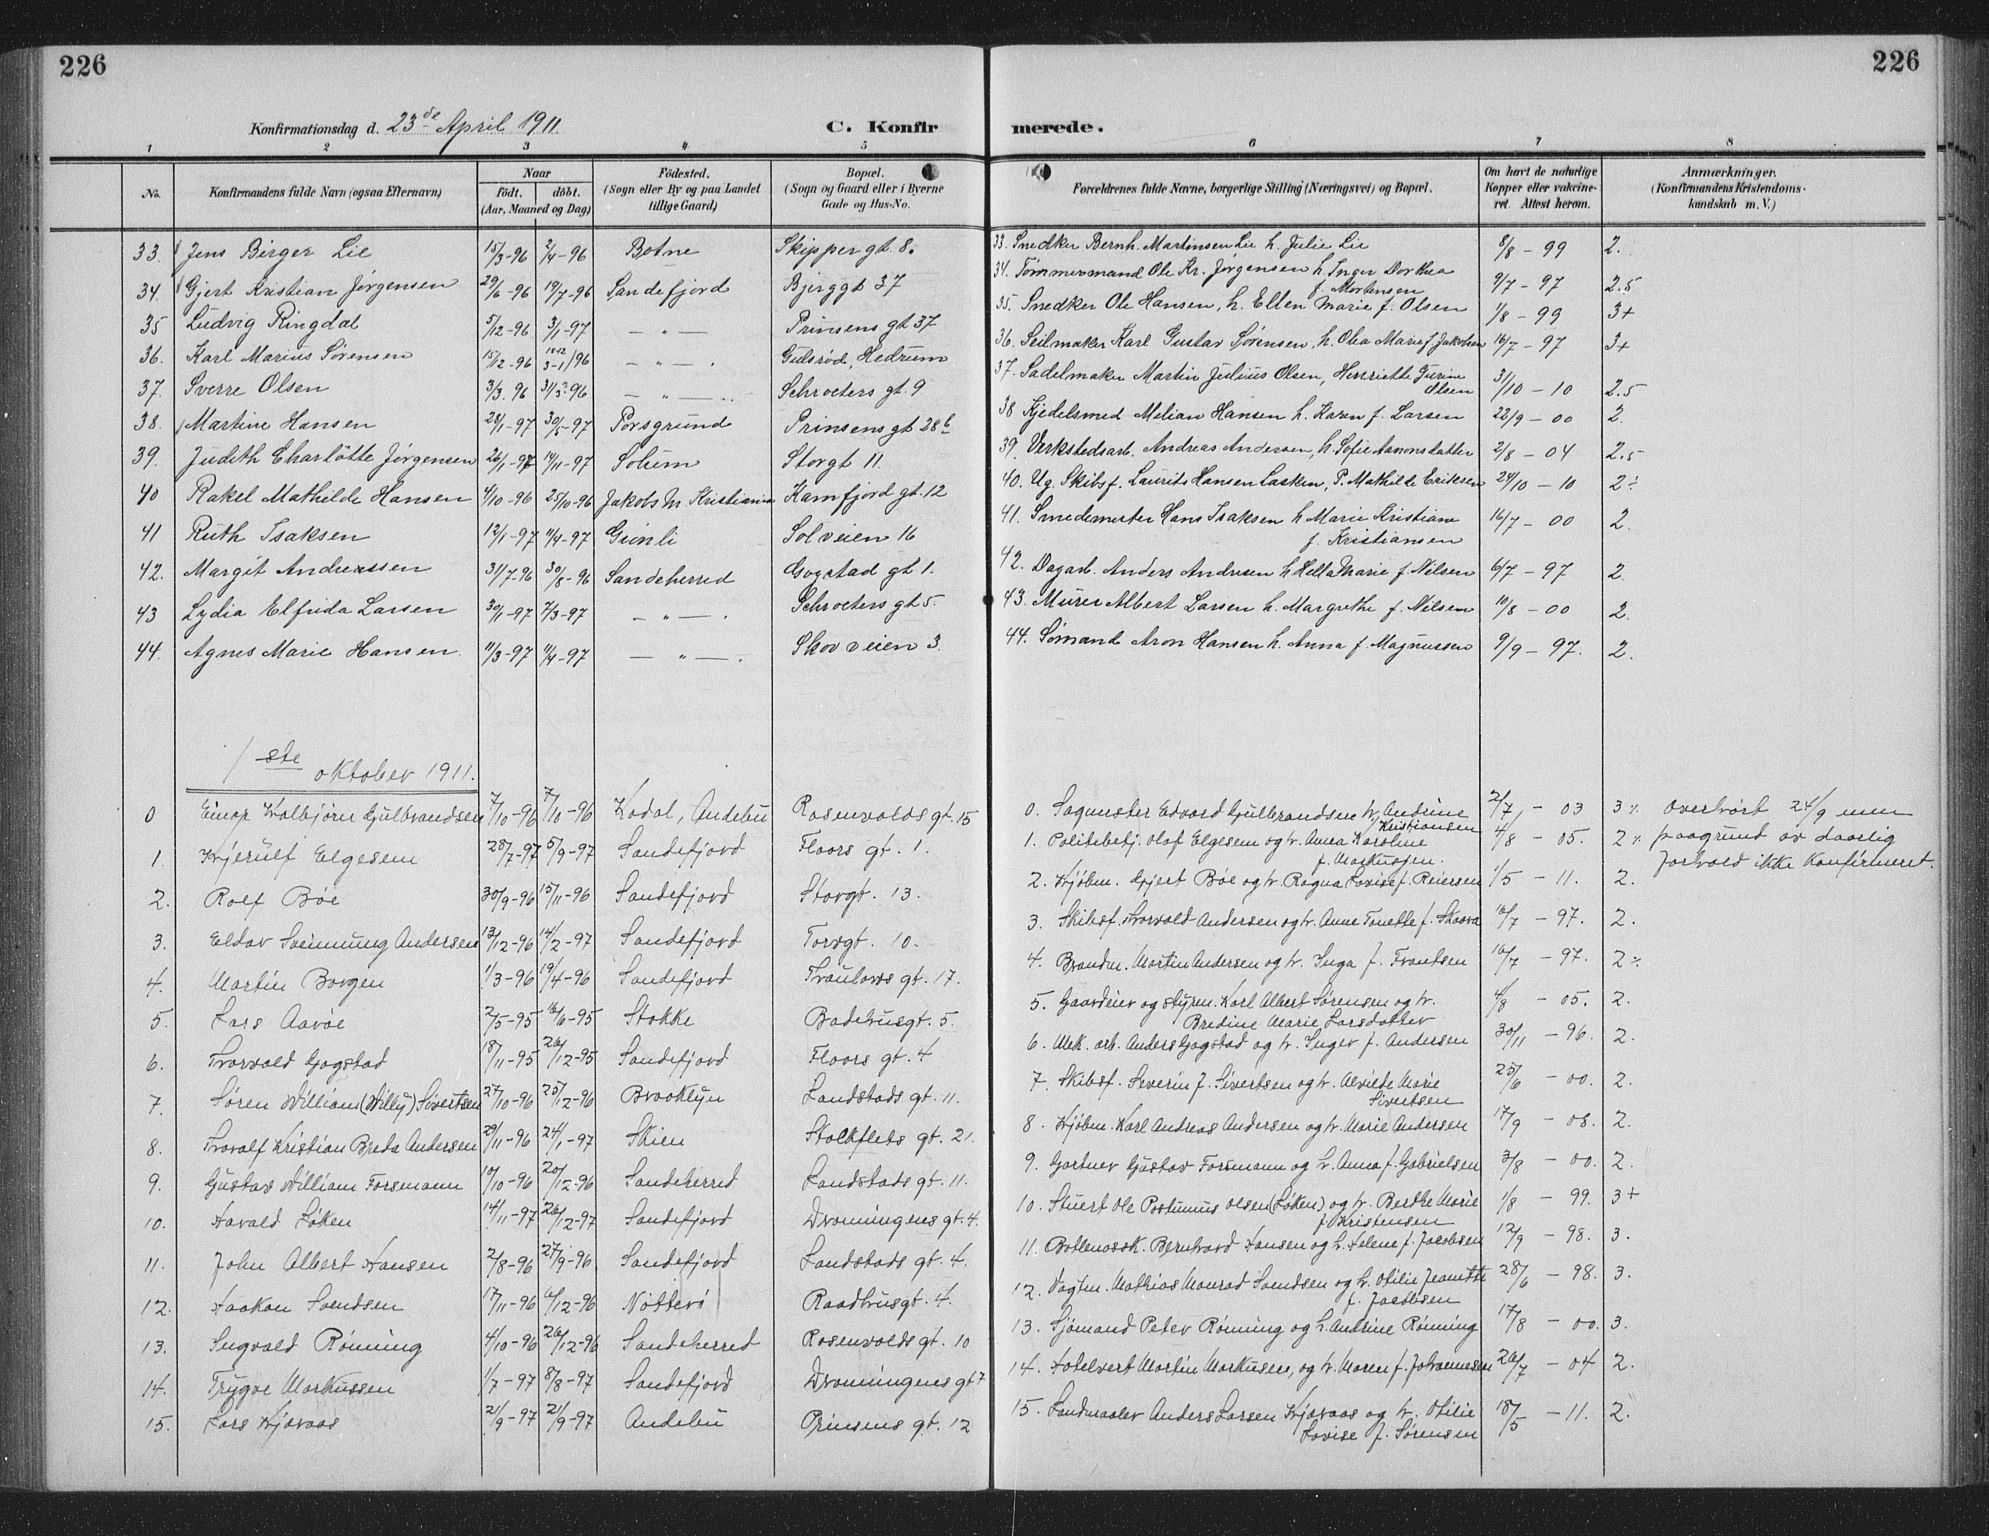 226
226
Konfirmationsdag d. 23de April 1911
C. Konfirmerede.
1 2 3 4 5 6 7 8
No.
Konfirmandens fulde Navn (ogsaa Efternavn)
Naar
født. døbt.
(Aar, Maaned og Dag)
Fødested.
(Sogn eller By og paa Landet
tillige Gaard)
Bopæl.
(Sogn og Gaard eller i Byerne
Gade og Hus-No.
Forældrenes fulde Navne, borgerlige Stilling (Næringsvei) og Bopæl.
Om havt de naturlige
Kopper eller vakcine-
ret. Attest herom.
Anmærkninger.
(Konfirmandens Kristendoms-
kundskab m. V.)
33. Jens Birger Lie 15/3-96 2/4-96 Botne Skippergt 8. 33. Snedker Bernh. Martinsen Lie h. Julie Lie 8/8 - 99 2.
34. Gjert Kristian Jørgensen 29/6-96 19/7-96 Sandefjord Bjerggt 37 34. Tømmermand Ole Kr. Jørgensen h. Inger Dorthea f. Mortensen 9/7 - 97 2.5
35 Ludvig Ringdal 5/12-96 3/1-97 — " — Prinsens gt 37 35. Snedker Ole Hansen, h. Ellen Marie f. Olsen 1/8 - 99 3+
36. Karl Marius Sørensen 15/12-96 — " — Gulsrød, Hedrum 36. Seilmaker Karl Gustav Sørensen, h. Olea Marie f Jakobsen 16/7 - 97 3+
37. Sverre Olsen 3/3.96 31/5-96 — " — Schroeters gt. 9 37. Sadelmaker Martin Julius Olsen, Henriette Gurine Olsen 31/10 - 10 2.5
38. Martine Hansen 28/1-97 30/5-97 Porsgrund Prinsens gt 28b 38 Kjedelsmed Melian Hansen h. Karen f. Larsen 22/9 - 00 2.
39. Judith Charlotte Jørgensen 26/1-97 14/11-97 Solum Storgt 11. 39. Verkstedsarb. Andreas Andersen, h. Sofie Aamonsdatter 2/8 - 04 2.5
40 Rakel Mathilde Hansen 4/10-96 25/10-96 Jakobs M. Kristiania Kamfjord gt. 12 40. Ug. Skibsf. Laurits Hansen Lasken, P. Mathilde Eriksen 24/10 - 10 2÷
41 Ruth Isaksen 12/1-97 11/4-97 Grønli Solveien 16 41. Smedemester Hans Isaksen h Marie Kristiane f. Kristiansen 16/7 - 00 2.
42. Margit Andreassen 31/7-96 30/8-96 Sandeherred Gogstad gt 1. 42. Dagarb. Anders Andresen h Hella Marie f. Nilsen 6/7 - 97 2.
43 Lydia Elfrida Larsen 30/1-97 7/3-97 — " — Schroeters gt 5. 43. Murer Albert Larsen h. Margrethe f. Nilsen 10/8 - 00 2.
44. Agnes Marie Hansen. 11/3-97 11/4-97 — " — Skovveien 3. 44. Sømand Aron Hansen h. Anna f. Magnussen 9/9 - 97. 2.
1ste oktober 1911.
0 Einar Kolbjørn Gulbrandsen 7/10-96 7/10-96 Kodal, Andebu Rosenvolds gt. 15 0. Sagmester Edvard Gulbrandsen h. Andrine Kristiansen 2/7 - 03 3% Overhørt 24/9 men
1. Kjerulf Elgesem 28/7-97 5/9-97 Sandefjord Floors gt. 1. 1. Politibetj. Olaf Elgesem og h. Anna Karoline f. Markussen. 4/8 - 05. 2% paagrund av daarlig
forhold ikke konfirmeret.
2. Rolf Bøe 30/9-96 15/11-96 Sandefjord Storgt. 13. 2. Kjøbm. Gjert Bøe og h. Ragna Lovise f. Reiersen 1/5 - 11. 2.
3. Eldar Sveinung Andersen 13/12-96 14/2-97 Sandefjord Torvgt. 10. 3. Skibsf. Thorvald Andersen og h. Anne Tonette f. Skaava 16/7 - 97. 2.
4. Martin Borgen 1/3-96 19/4-96 Sandefjord Thaulows gt. 17. 4. Brandm. Martin Andersen og h. Inga f. Frantsen 16/7 - 97. 2%
5. Lars Aarøe 2/5-95 16/6-95 Stokke Badehusgt. 5. 5. Gaardeier og styrm. Karl Albert Sørensen og h. Bredine Marie Larsdatter 4/8 - 05. 2.
6. Thorvald Gogstad 18/11-95 26/12-95 Sandefjord Floors gt. 4 6. Mek. arb. Anders Gogstad og h. Inger f. Andersen 30/11 - 96. 2.
7. Søren William (Willy) Sivertsen 27/10-96 25/12-96 Brooklyn Landstads gt. 11. 7. Skibsf. Severin J. Sivertsen og h. Alvilde Marie Sivertsen 25/6 - 00. 2.
8. Thoralf Kristian Breda Andersen 29/11-96 24/1-97 Skien Stolkflets gt. 21. 8. Kjøbm. Karl Andreas Andersen og h. Marie Andersen 17/9 - 08. 2.
9. Gustav William Forsmann 10/10-96 20/12-96 Sandeherred Landstads gt. 11. 9. Gartner Gustav Forsmann og h. Anna f. Gabrielsen 3/8 - 00. 2.
10. Harald Løken 14/11-97 26/12-97 Sandefjord Dronningens gt. 4. 10. Stuert Ole Postumus Olsen (Løken) og h. Berthe Marie f. Kristensen 1/8 - 99. 3+
11. John Albert Hansen 2/8-96 27/9-96 Sandefjord Landstads gt. 4. 11. Bernhard Hansen og h. Helene f. Jacobsen 12/9 - 98. 3.
12. Haakon Svendsen 17/11-96 6/12-96 Nøtterø Raadhusgt. 4. 12. Vagtm. Mathias Monrad Svendsen og h. Otilie Jeanette f. Jacobsen 28/6 - 98. 3.
13. Ingvald Rønning 4/10-96 26/12-96 Sandeherred Rosenvolds gt. 10 13. Sjømand Peter Rønning og h. Andrine Rønning 17/8 - 00. 3.
14. Trygve Markussen 1/7-97 8/8-97 Sandefjord Dronningens gt 7 14. Hotelvert Martin Markusen, og h. Maren f. Johannesen 26/7 - 04 2.
15. Lars Hjavaas 21/9-97 21/9-97 Andebu Prinsens gt. 12 15. Anders Larsen Hjavaas og h. Otilie Lovise f. Sørensen 18/5 - 11. 2.